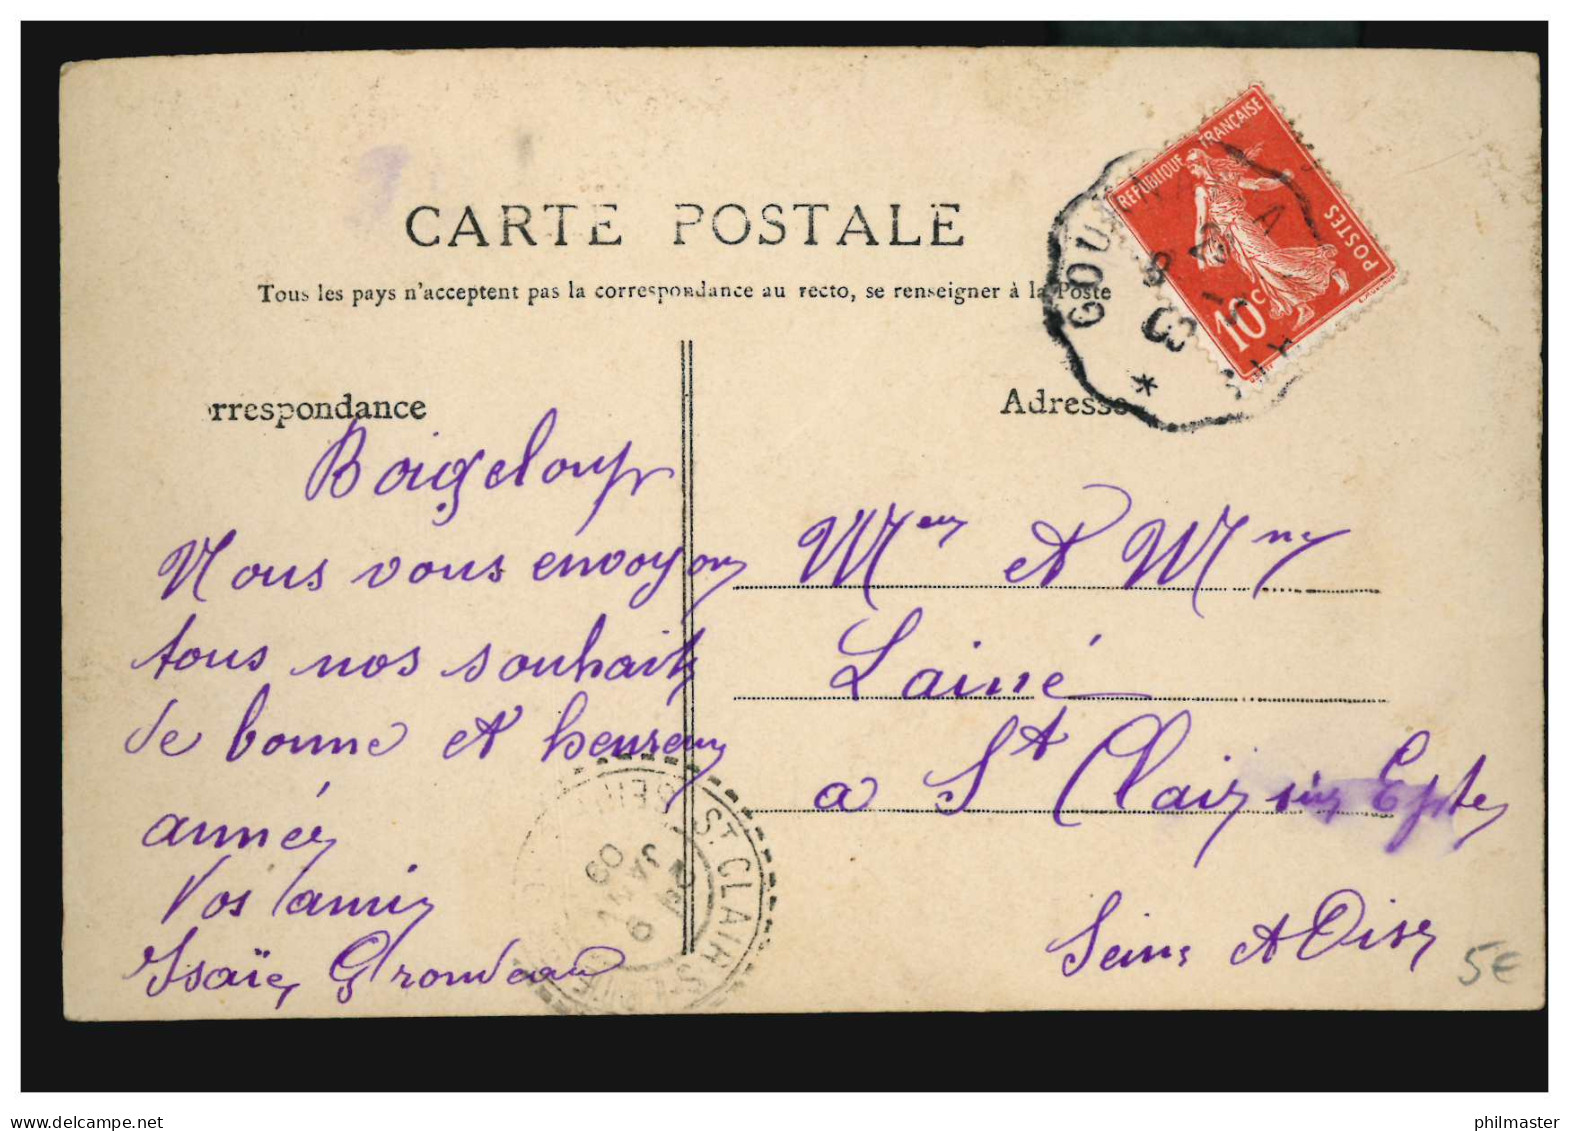 CARTE POSTALE
Tous les pays n'acceptent pas la correspondance au recto, se renseigner à la Poste
rrespondance
Adresse
REPUBLIQUE FRANÇAISE
POSTES
10c
Boisgeloup
Nous vous envoyons
tous nos souhaits
de bonne et heureuse
année
Vos amis
Isaïe Grondeau
Meur et Mme
Lainé
a St Clair sur Epte
Seine et Oise
ST CLAIR S
JANV
09
5€
delcampe.net
philmaster